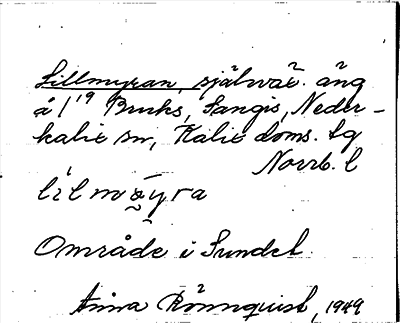 Lillmyran, självär. äng
å 1/19 Bruks, Sangis, Neder-
kalix sn, Kalix doms. tg
Norrb. l
lìlmæ̀yra
Område i Sundet
Anna Rönnquist, 1949